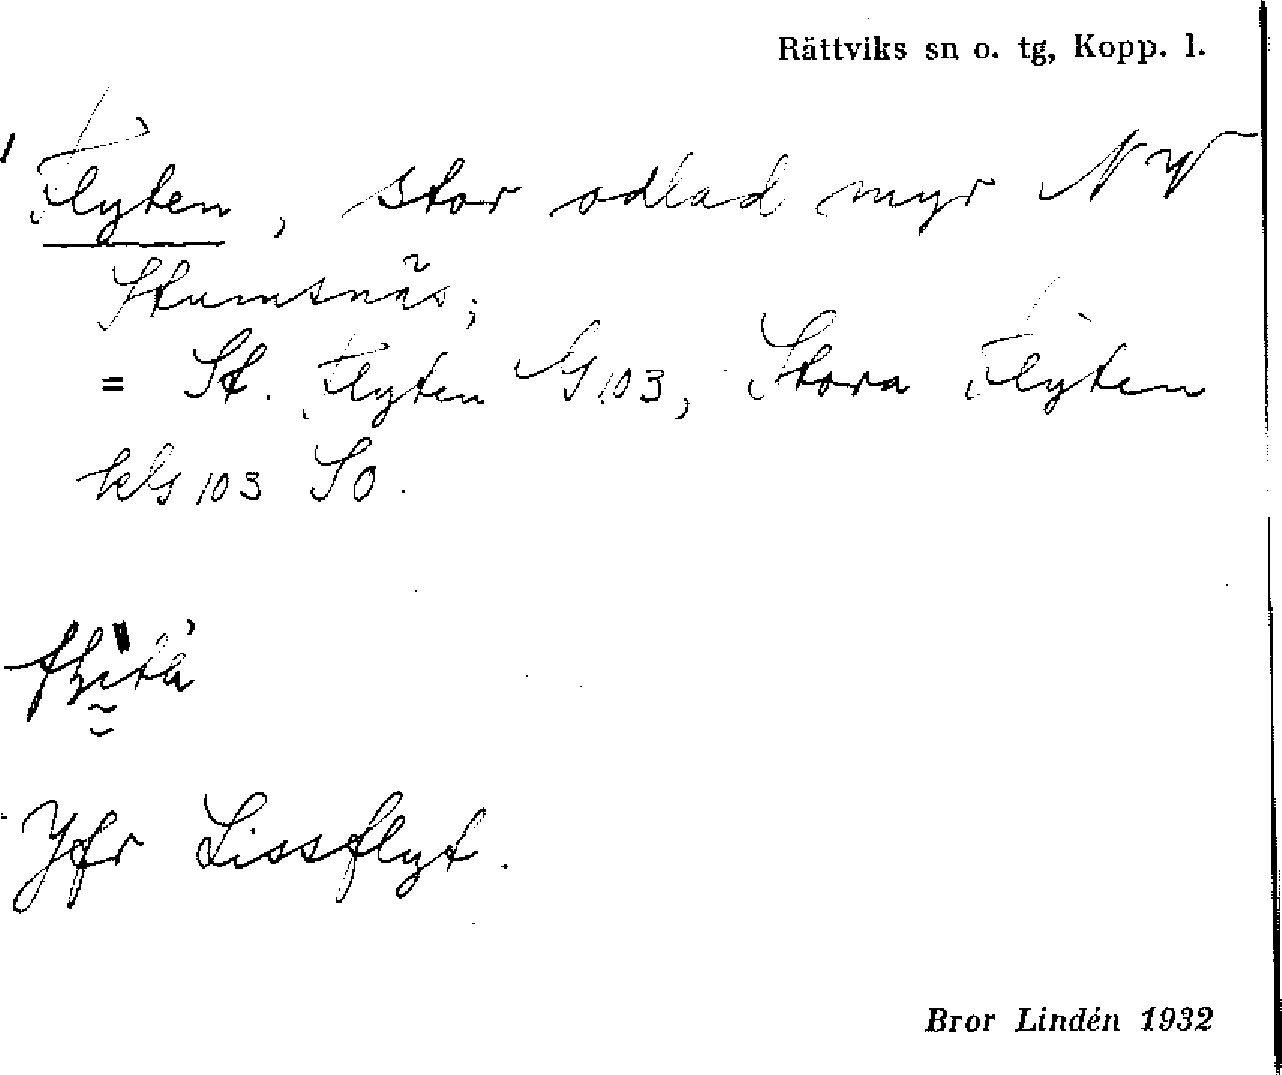 Rättviks sn o. tg, Kopp. l.
Flyten, stor odlad myr NV
Stumsnäs;
= St. Flyten G 103, Stora Flyten
kG 103 SO.
Jfr Lissflyt.
Bror Lindén 1932